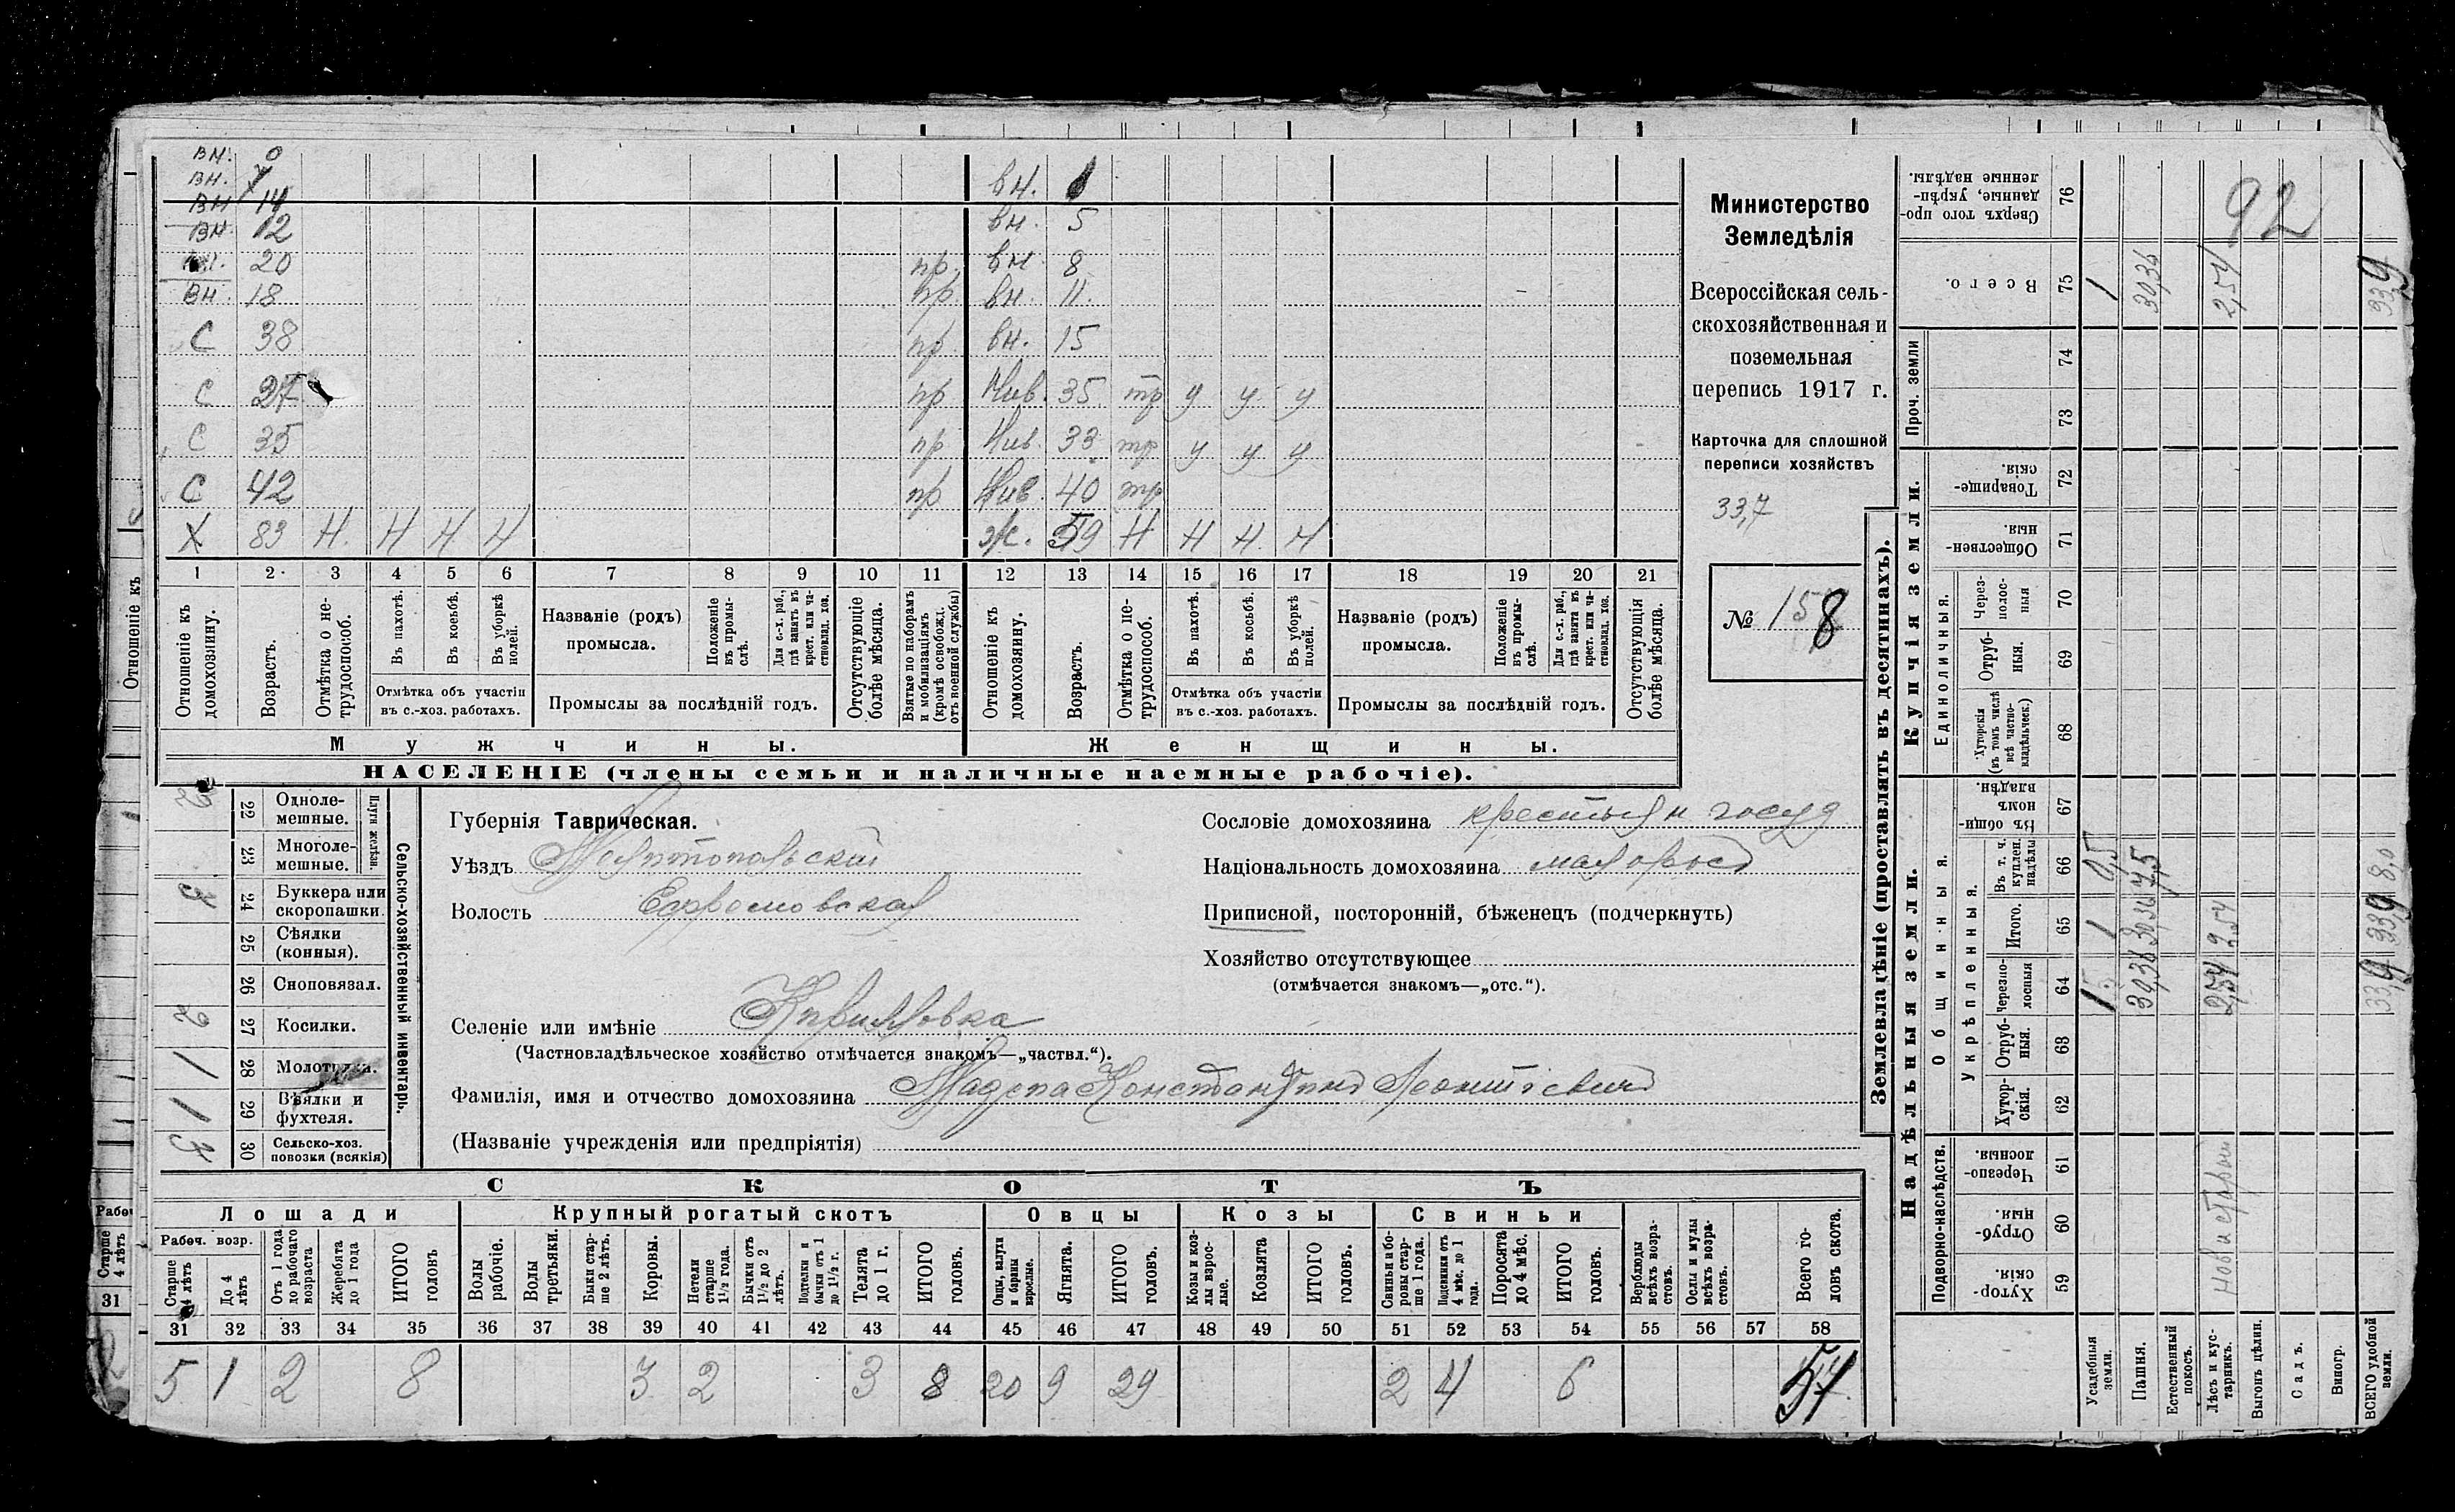 вн. 0
вн. вн. 1
вн 14
вн. 12 вн. 5
20 пр. вн 8
вн. 18 пр. вн. 11.
С 38 пр. вн. 15
С 27 пр Нив. 35 тр у у у
С 35 пр Нив. 33 тр у у у
С 42 пр Нив. 40 тр
Х 83 Н. Н Н Н ж. 59 Н Н Н. Н
1 2 3 4 5 6 7 8 9 10 11 12 13 14 15 16 17 18 19 20 21
Отношеніе къ домохозяину.
Возрастъ.
Отмѣтка о нетрудоспособ.
Въ пахотѣ.
Въ косьбѣ.
Въ уборкѣ полей.
Отмѣтка объ участіи въ с.-хоз. работахъ.
Названіе (родъ) промысла.
Положеніе въ промыслѣ.
Для с.-х. раб., гдѣ занятъ въ крест. или частновлад. хоз.
Промыслы за послѣдній годъ.
Отсутствующіе болѣе мѣсяца.
Взятые по наборамъ и мобилизаціямъ (кромѣ освобожд. отъ военной службы)
Отношеніе къ домохозяину.
Возрастъ.
Отмѣтка о нетрудоспособ.
Въ пахотѣ.
Въ косьбѣ.
Въ уборкѣ полей.
Отмѣтка объ участіи въ с.-хоз. работахъ.
Названіе (родъ) промысла.
Положеніе въ промыслѣ.
Для с.-х. раб., гдѣ занята въ крест. или частновлад. хоз.
Промыслы за послѣдній годъ.
Отсутствующія болѣе мѣсяца.
Мужчины.
Женщины.
НАСЕЛЕНІЕ (члены семьи и наличные наемные рабочіе).
Министерство
Земледѣлія
Всероссійская сель-
скохозяйственная и
поземельная
перепись 1917 г.
Карточка для сплошной
переписи хозяйствъ
33,7
№ 158
Сельско-хозяйственный инвентарь.
Плуги желѣзн.
22 Однолемешные. 2
23 Многолемешные.
24 Буккера или скоропашки. 3
25 Сѣялки (конныя).
26 Сноповязал.
27 Косилки. 2
28 Молотилки. 1
29 Вѣялки и фухтеля. 1
30 Сельско-хоз. повозки (всякія) 3
Губернія Таврическая.
Уѣздъ Мелитопольскій
Волость Ефремовская
Сословіе домохозяина крестьян госуд
Національность домохозяина малоросъ
Приписной, посторонній, бѣженецъ (подчеркнуть)
Хозяйство отсутствующее
(отмѣчается знакомъ—„отс.“).
Селеніе или имѣніе Кирилловка
(Частновладѣльческое хозяйство отмѣчается знакомъ—„частвл.“).
Фамилія, имя и отчество домохозяина Константинъ Леонтіевичъ
(Названіе учрежденія или предпріятія)
СКОТЪ
Лошади Крупный рогатый скотъ Овцы Козы Свиньи
Рабоч. возр.
Старше 4 лѣтъ
До 4 лѣтъ
Отъ 1 года до рабочаго возраста
Жеребята до 1 года
ИТОГО головъ
Волы рабочіе.
Волы третьяки.
Быки старше 2 лѣтъ.
Коровы.
Нетели старше 1½ года.
Бычки отъ 1½ до 2 лѣтъ.
Подтелки и бычки отъ 1 до 1½ г.
Телята до 1 г.
ИТОГО головъ.
Овцы, валухи и бараны взрослые.
Ягнята.
ИТОГО головъ.
Козы и козлы взрослые.
Козлята
ИТОГО головъ.
Свиньи и боровы старше 1 года.
Подсвинки отъ 4 мѣс. до 1 года.
Поросята до 4 мѣс.
ИТОГО головъ.
Верблюды всѣхъ возрастовъ.
Ослы и мулы всѣхъ возрастовъ.
Всего головъ скота.
31 32 33 34 35 36 37 38 39 40 41 42 43 44 45 46 47 48 49 50 51 52 53 54 55 56 57 58
5 1 2 8 3 2 3 8 20 9 29 2 4 6 51
Землевладѣніе (проставлять въ десятинахъ).
Купчія земли.
Надѣльныя земли.
76 Сверхъ того проданные, укрѣпленные надѣлы. 92
75 Всего. 1 30,36 2,54 33,9
Проч. земли
74
73
72 Товарищескія.
71 Общественныя.
Единоличныя.
70 Черезполосныя
69 Отрубныя.
68 Хуторскія (въ томъ числѣ всѣ частновладѣльческ.)
Общинныя.
67 Въ общинномъ владѣн.
Укрѣпленныя.
66 Въ т. ч. куплен. надѣлы 0,5 7,5 8,0
65 Итого. 1 30,36 2,54 33,9
64 Черезполосныя 1 30,36 2,54 33,9
63 Отрубныя.
62 Хуторскія.
Подворно-наслѣдств.
61 Черезполосныя.
60 Отрубныя.
59 Хуторскія.
Усадебныя земли.
Пашня.
Естественный покосъ.
Лѣсъ и кустарникъ.
Выгонъ цѣлин.
Садъ.
Виногр.
ВСЕГО удобной земли.
Отношеніе къ
Старше 4 лѣтъ
31